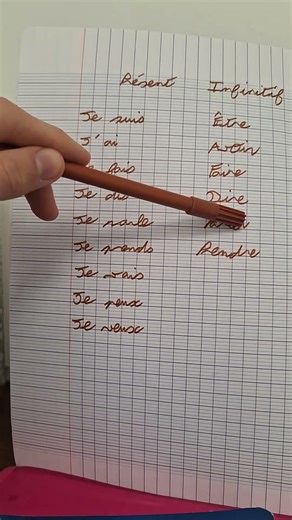 Présent Infinitif
Je suis Être
J'ai Avoir
fais Faire
Je Dire
Je parle
Je prends Prendre
Je vais
Je peux
Je veux